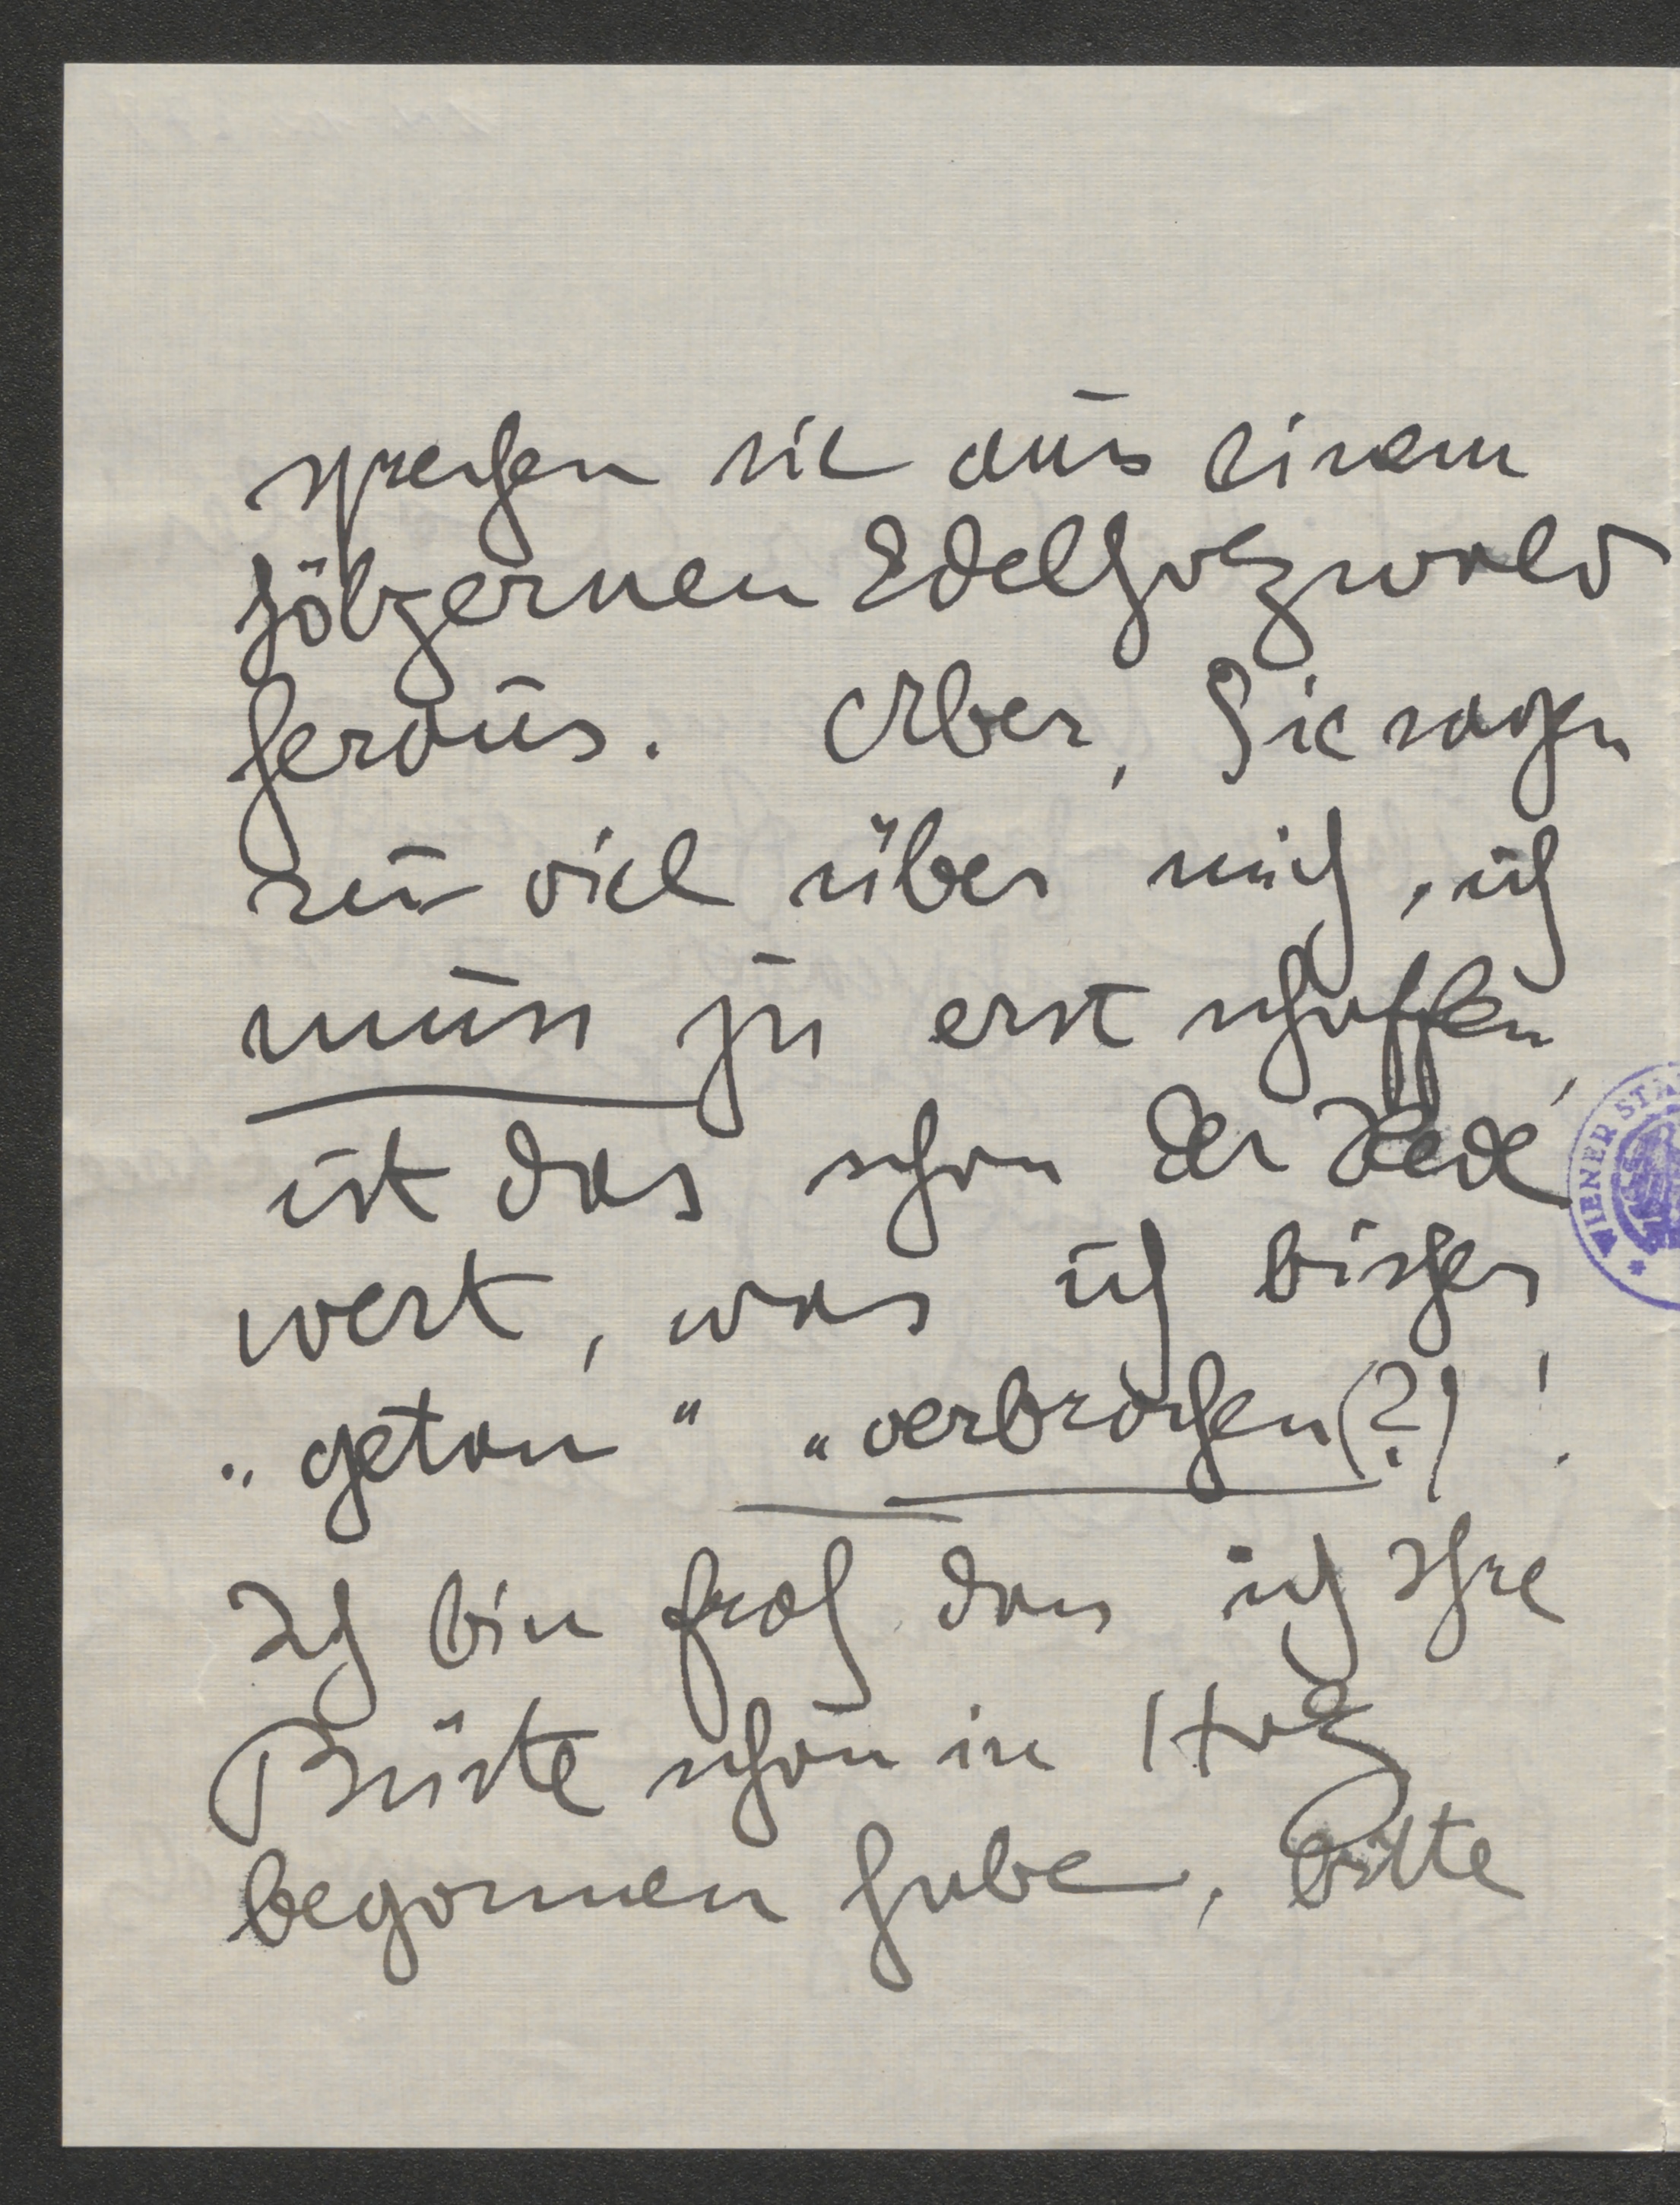 sprechen sie aus einem
hölzernen Edelholzwald
heraus. Aber, Sie sagen
zu viel über mich, ich
muss zu erst schaffen,
ist das schon der Rede
wert, was ich bisher
„getan" „verbrochen(?)!
Ich bin froh dass ich Ihre
Büste schon in Holz
begonnen habe, bitte
WIENER STA